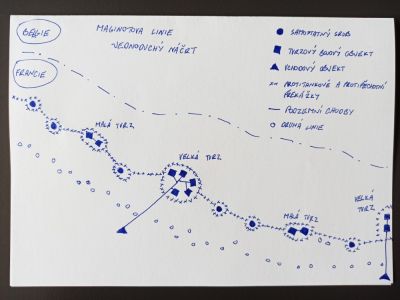 BELGIE
FRANCIE
MAGINOTOVA LINIE
-JEDNODUCHÝ NÁČRT
SAMOSTATNÝ SRUB
TVRZOVÝ BOJOVÝ OBJEKT
VCHODOVÝ OBJEKT
PROTITANKOVÉ A PROTIPĚCHOTNÍ
PŘEKÁŽKY
PODZEMNÍ CHODBY
DRUHÁ LINIE
MALÁ TVRZ
VELKÁ TVRZ
MALÁ TVRZ
VELKÁ
TVRZ